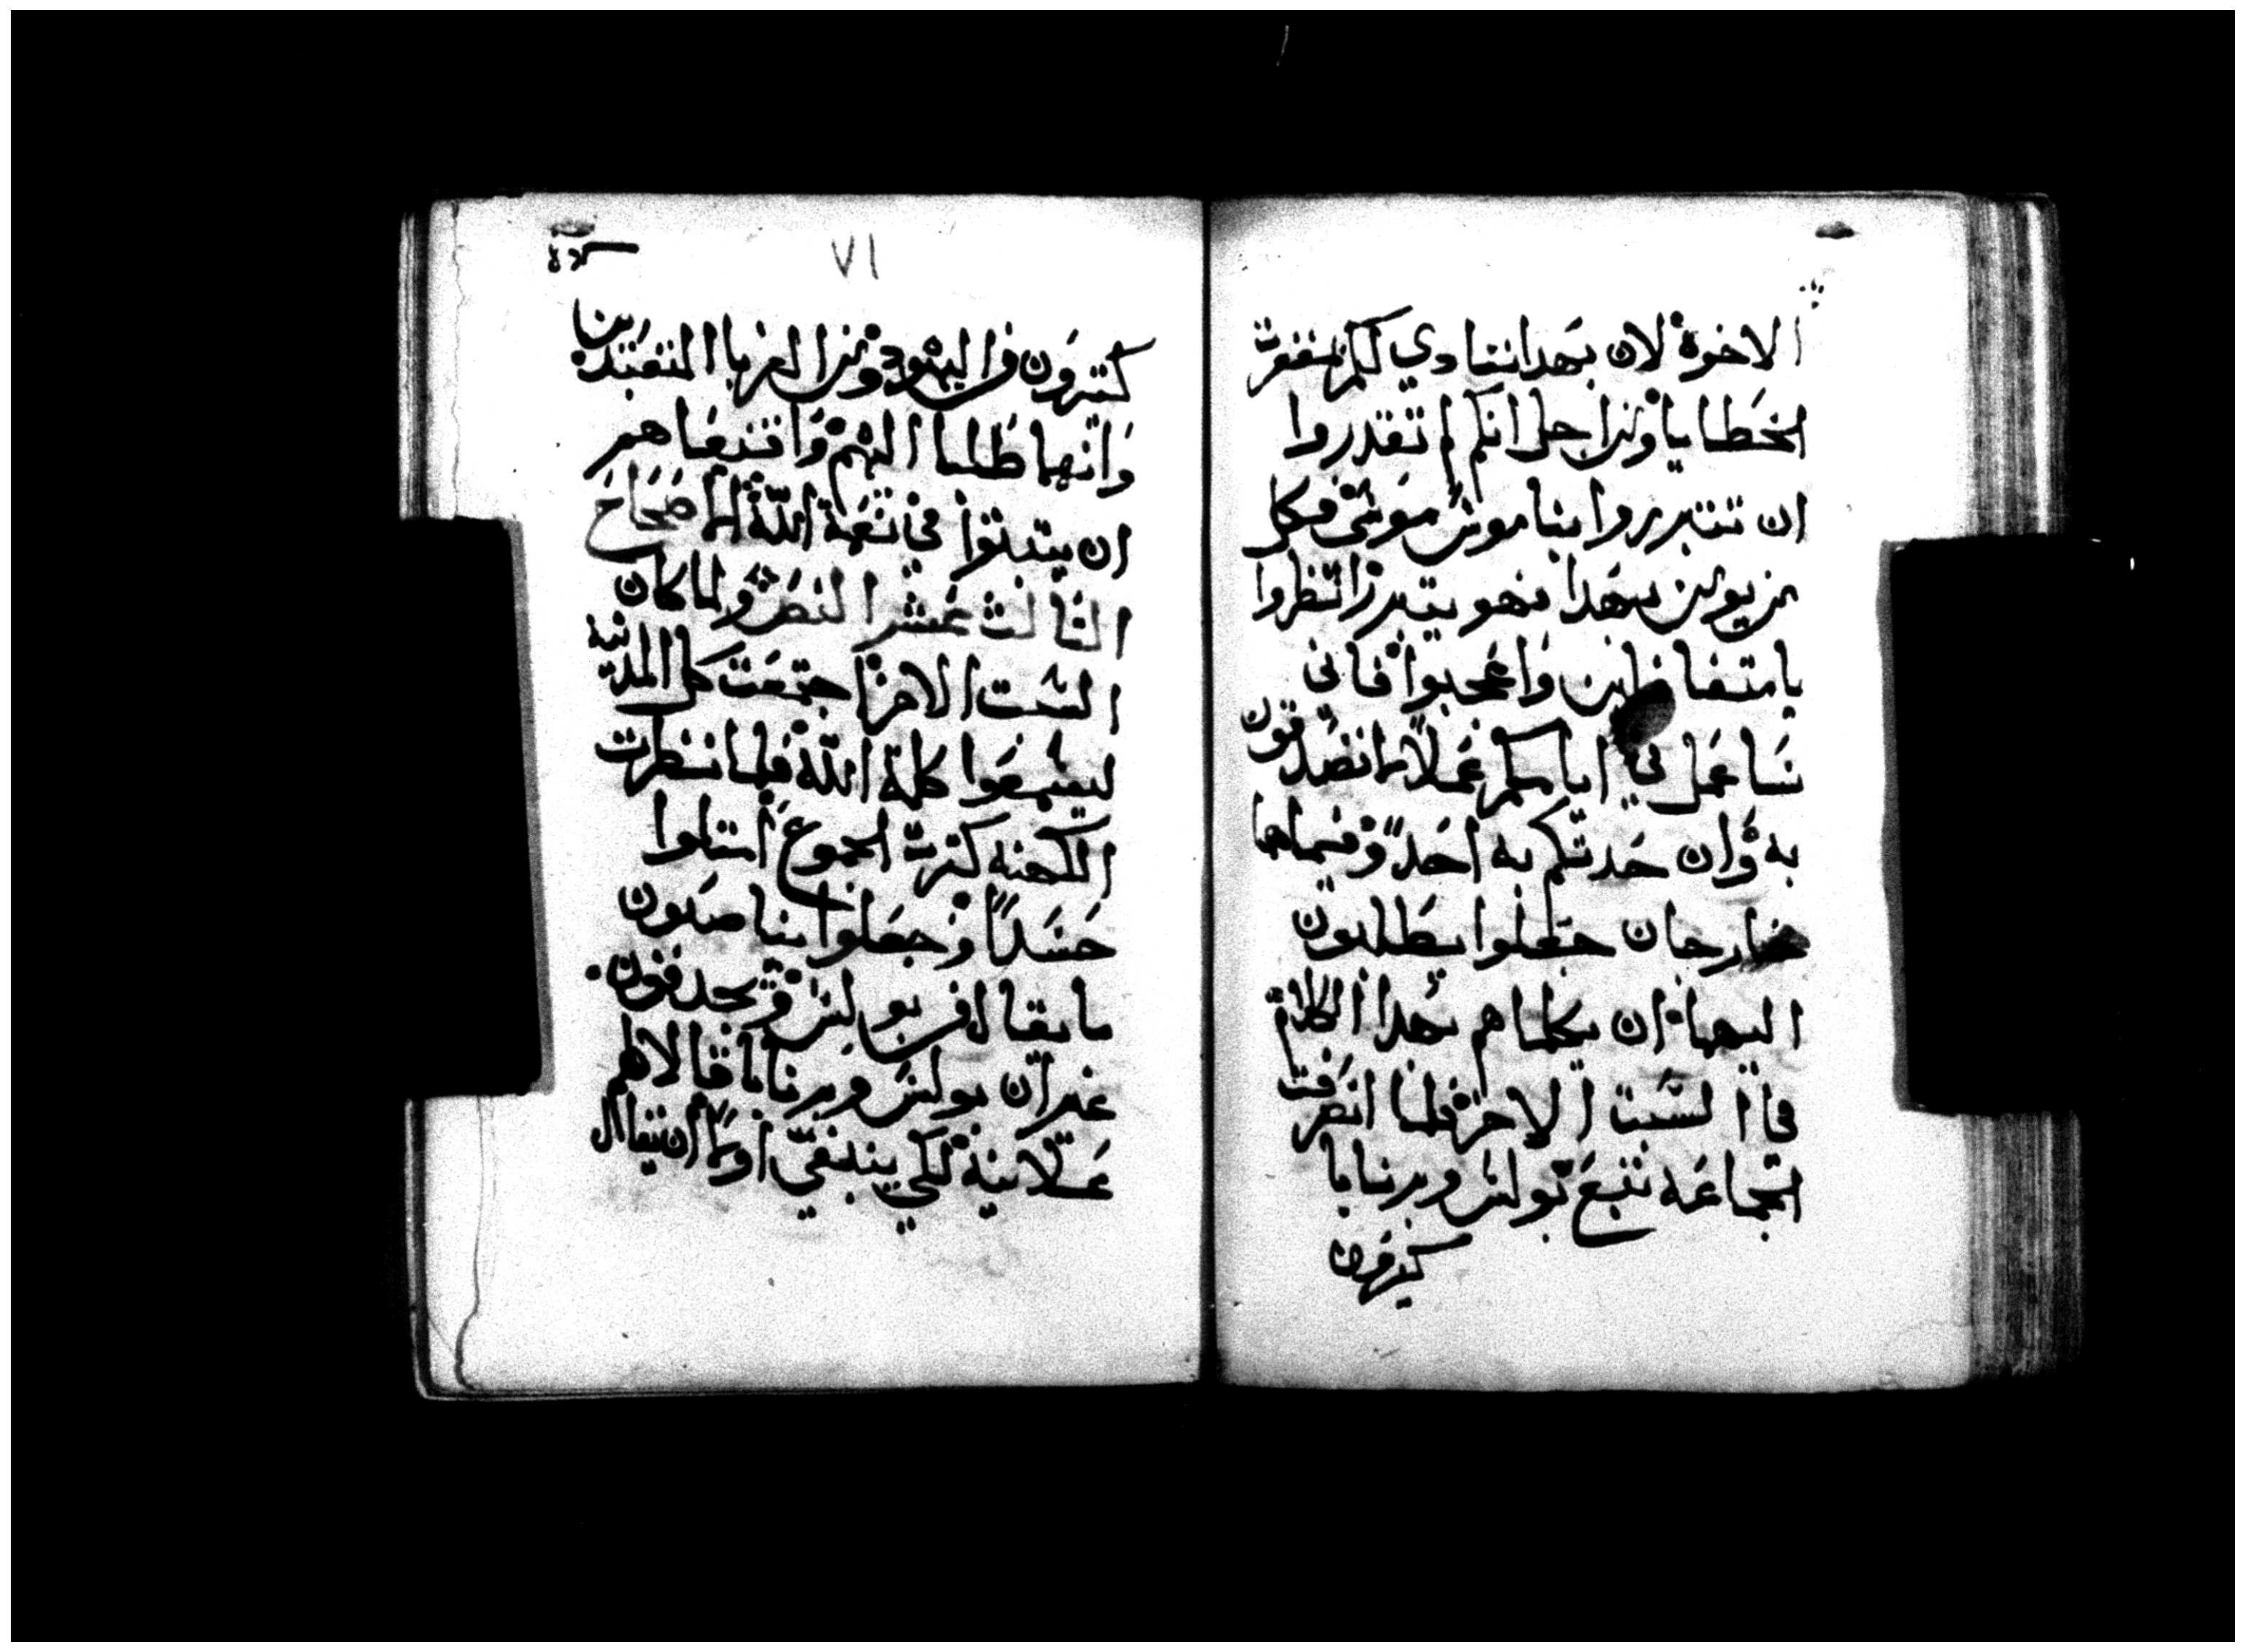 الاخوة لان بهدا ننادي لكم بمغفرة
الخطايا ومن اجل انكم لم تقدروا
ان تتبرروا بناموس موسى فكل
من يومن بهدا فهو يتبرر انظروا
يا متغافلين واعجبوا فاني
ساعمل في ايامكم عملا ما تصدقون
به وان حدتكم به احد وفيما هما
خارجان جعلوا يطلبون
اليهما ان يكلماهم بهدا الكلام
في السبت الاخر فلما انصرفت
الجماعه تبع بولس وبرنابا
كثيرون
٧١
كتيرون من اليهود ومن الغربا المتعبدين
وانهما طلبا اليهم واقنعاهم
ان يتبتوا في نعمة الله اصحاح
التالت عشر النص ولما كان
السبت الاخر اجتمعت كل المدينه
ليسمعوا كلمة الله فلما نظرت
الكهنه كثرت الجموع امتلوا
حسدا وجعلوا يناصبون
ما يقال من بولس ويجدفون
غير ان بولس وبرنابا قالا لهم
علانية لكي ينبغي اولا ان تقال